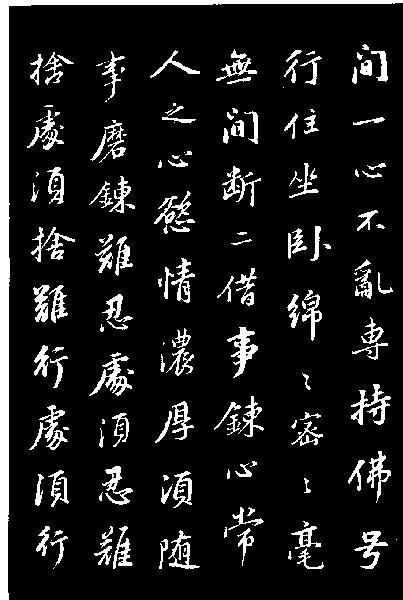 间一心不亂専持佛号
行住坐卧綿〻密〻毫
無间断二借事鍊心常
人之心慾情濃厚須随
事磨鍊難忍處須忍難
捨處須捨難行處須行